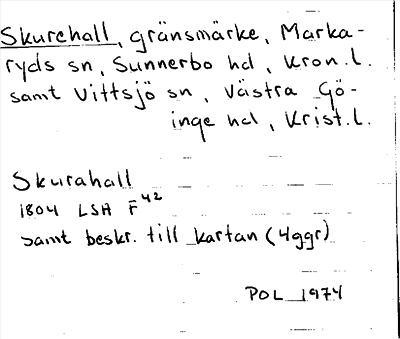 Skurehall, gränsmärke, Marka-
ryds sn, Sunnerbo hd, Kron.l.
samt Vittsjö sn, Västra Gö-
inge hd, Krist.l.
Skurahall
1804 LSA F42
samt beskr. till kartan (4ggr)
POL 1974